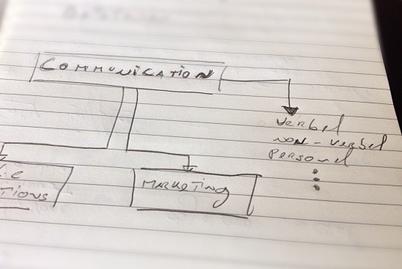 COMMUNICATION
VERBEL
NON-VERBEL
PERSONEL
MARKETING